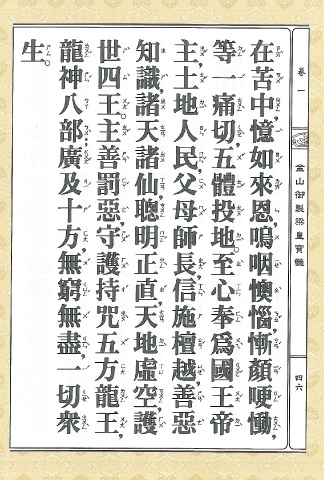 在苦中憶如來恩,嗚咽懊惱慚顏哽慟,
等一痛切五體投地。至心奉為國王帝
主,土地人民父母師長信施檀越善惡
知識,諸天諸仙聰明正直天地虛空,護
世四王。主善罰惡,守護持咒五方龍王,
龍神八部,廣及十方,無窮無盡一切衆
生。
卷一
金山御製梁皇寶懺
四六